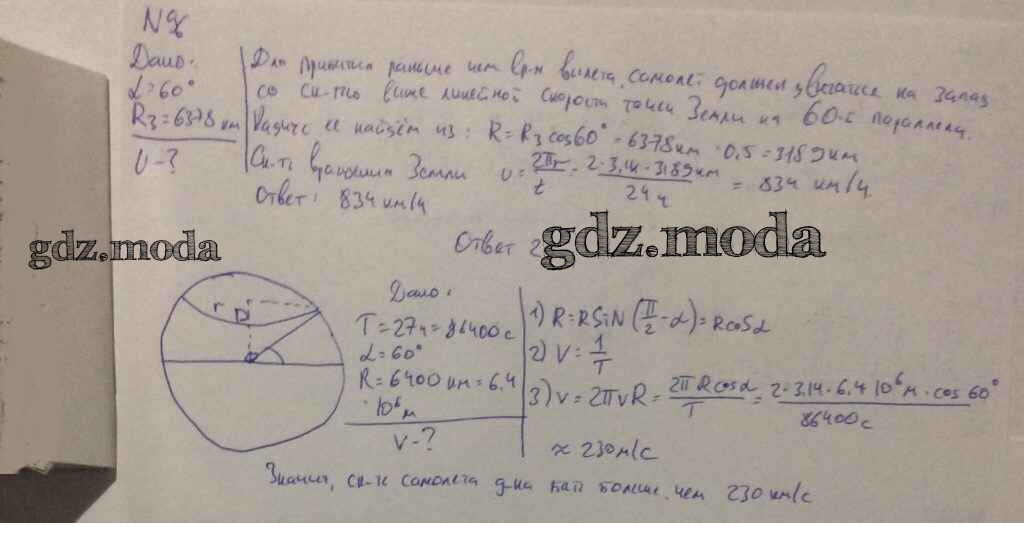 N 8
Дано:
α=60°
Rз=6378 км
v-?
Для прибытия раньше чем вр-я вылета, самолет должен двигаться на запад
со ск-тью выше линейной скорости точки Земли на 60-й параллели.
Радиус её найдём из: R=Rз cos60°=6378км·0,5=3189км
Ск-ть вращения Земли v=2πr/t=2·3,14·3189км/24ч=834 км/ч
Ответ: 834 км/ч
Ответ 2
gdz.moda
gdz.moda
r
Дано:
T=27ч=86400с
α=60°
R=6400км=6,4
·10⁶м
v-?
1) R=RSiN(π/2-α)=Rcosα
2) V=1/T
3) v=2πνR=2πRcosα/T=2·3,14·6,4 10⁶м·cos60°/86400с
≈230м/с
Значит, ск-ть самолета д-на быть больше, чем 230 км/с